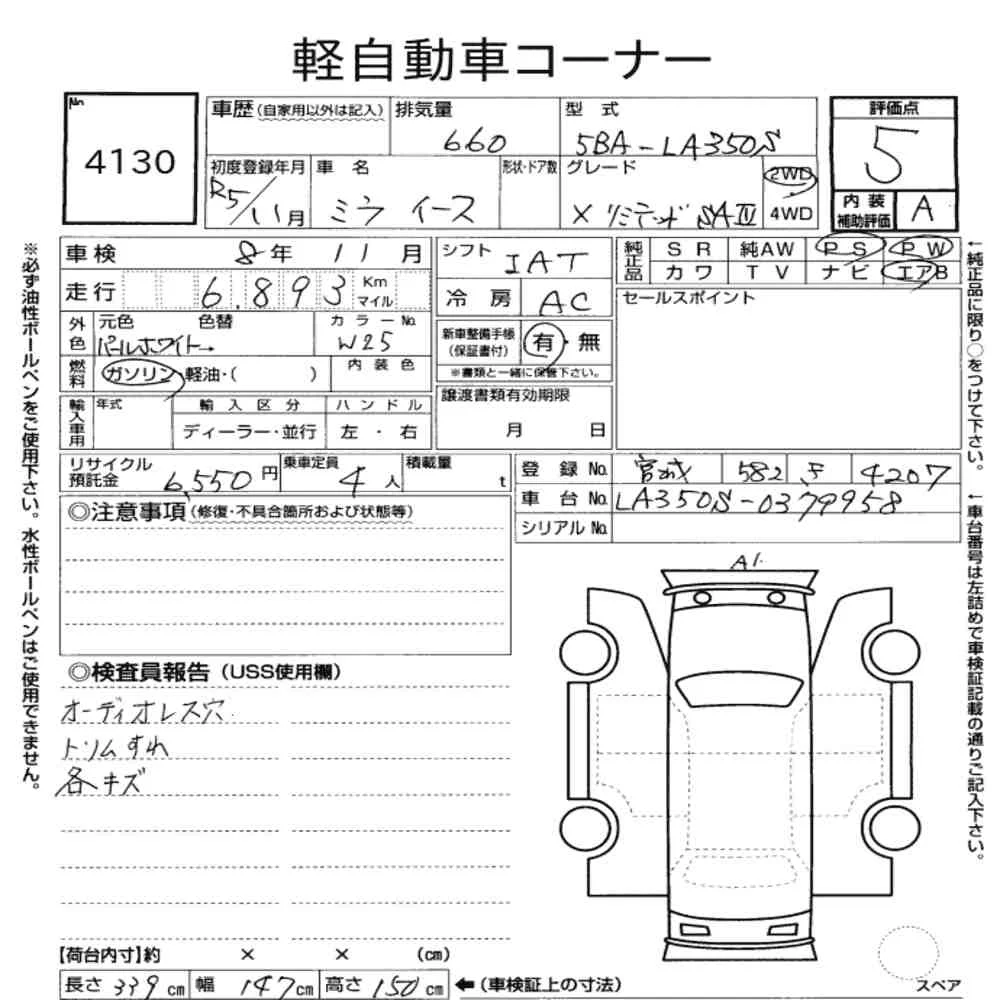 軽自動車コーナー
No. 4130
車歴(自家用以外は記入)
排気量 660
型式 5BA-LA350S
評価点 5
初度登録年月 R5/11月
車名 ミラ イース
形状・ドア数
グレード X リミテッド SAⅢ
2WD
4WD
内装補助評価 A
車検 8年 11月
シフト IAT
純正品 SR 純AW PS PW
カワ TV ナビ エアB
走行 6,893 Km マイル
冷房 AC
セールスポイント
外色 元色 パールホワイト→ 色替
カラーNo. W25
新車整備手帳(保証書付) 有・無
※書類と一緒に保管下さい。
燃料 ガソリン・軽油・( )
内装色
譲渡書類有効期限
月 日
輸入車用 年式 輸入区分 ハンドル
ディーラー・並行 左・右
リサイクル預託金 6,550円
乗車定員 4人
積載量 t
登録No. 宮城 582 う 4207
車台No. LA350S-0379958
シリアルNo.
◎注意事項(修復・不具合箇所および状態等)
A1
◎検査員報告(USS使用欄)
オーディオレス穴
トリムすれ
各キズ
【荷台内寸】約 × × (cm)
長さ 339cm 幅 147cm 高さ 150cm ←(車検証上の寸法)
スペア
※必ず油性ボールペンをご使用下さい。水性ボールペンはご使用できません。
←純正品に限り○をつけて下さい。
←車台番号は左詰めで車検証記載の通りご記入下さい。